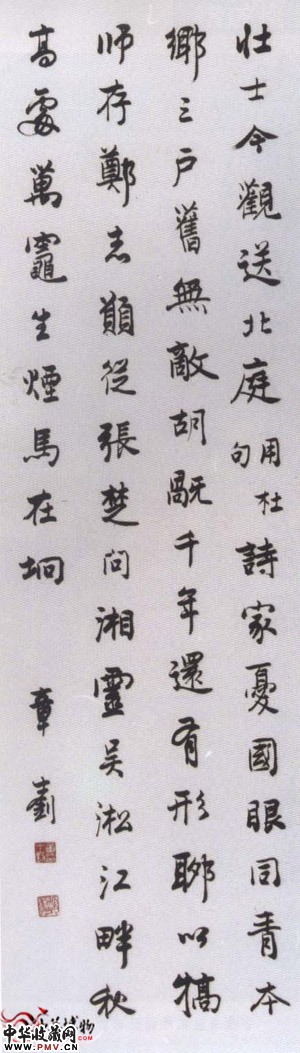 壮士今觀送北庭用杜句詩家憂國眼同青本
鄉三戶舊無敵胡千年還有形聊以犒
師存鄭志願從張楚問湘靈吳淞江畔秋
高處萬竈生煙馬在坰
章釗
中华收藏网
WWW.PMV.CN